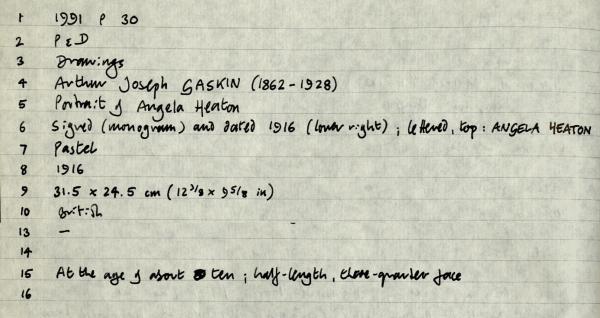 1 1991 P 30
2 P & D
3 Drawings
4 Arthur Joseph GASKIN (1862-1928)
5 Portrait of Angela Heaton
6 Signed (monogram) and dated 1916 (lower right) ; lettered, top : ANGELA HEATON
7 Pastel
8 1916
9 31.5 x 24.5 cm (12 3/8 x 9 5/8 in)
10 British
13 —
14
15 At the age of about ten ; half-length, three-quarter face
16